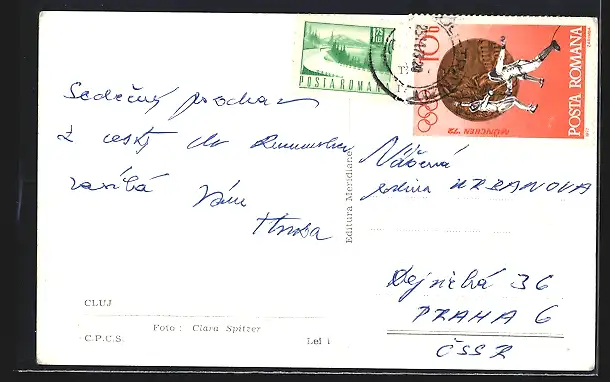 1.75 LEI
POSTA ROMANA
10L
MÜNCHEN '72
POSTA ROMANA
Srdečný pozdrav
z cesty do Rumunska
zasílá Vám
Editura Meridiane
Vážená
rodina URBANOVA
36
PRAHA 6
ČSSR
CLUJ
Foto : Clara Spitzer
C.P.C.S. Lei 1